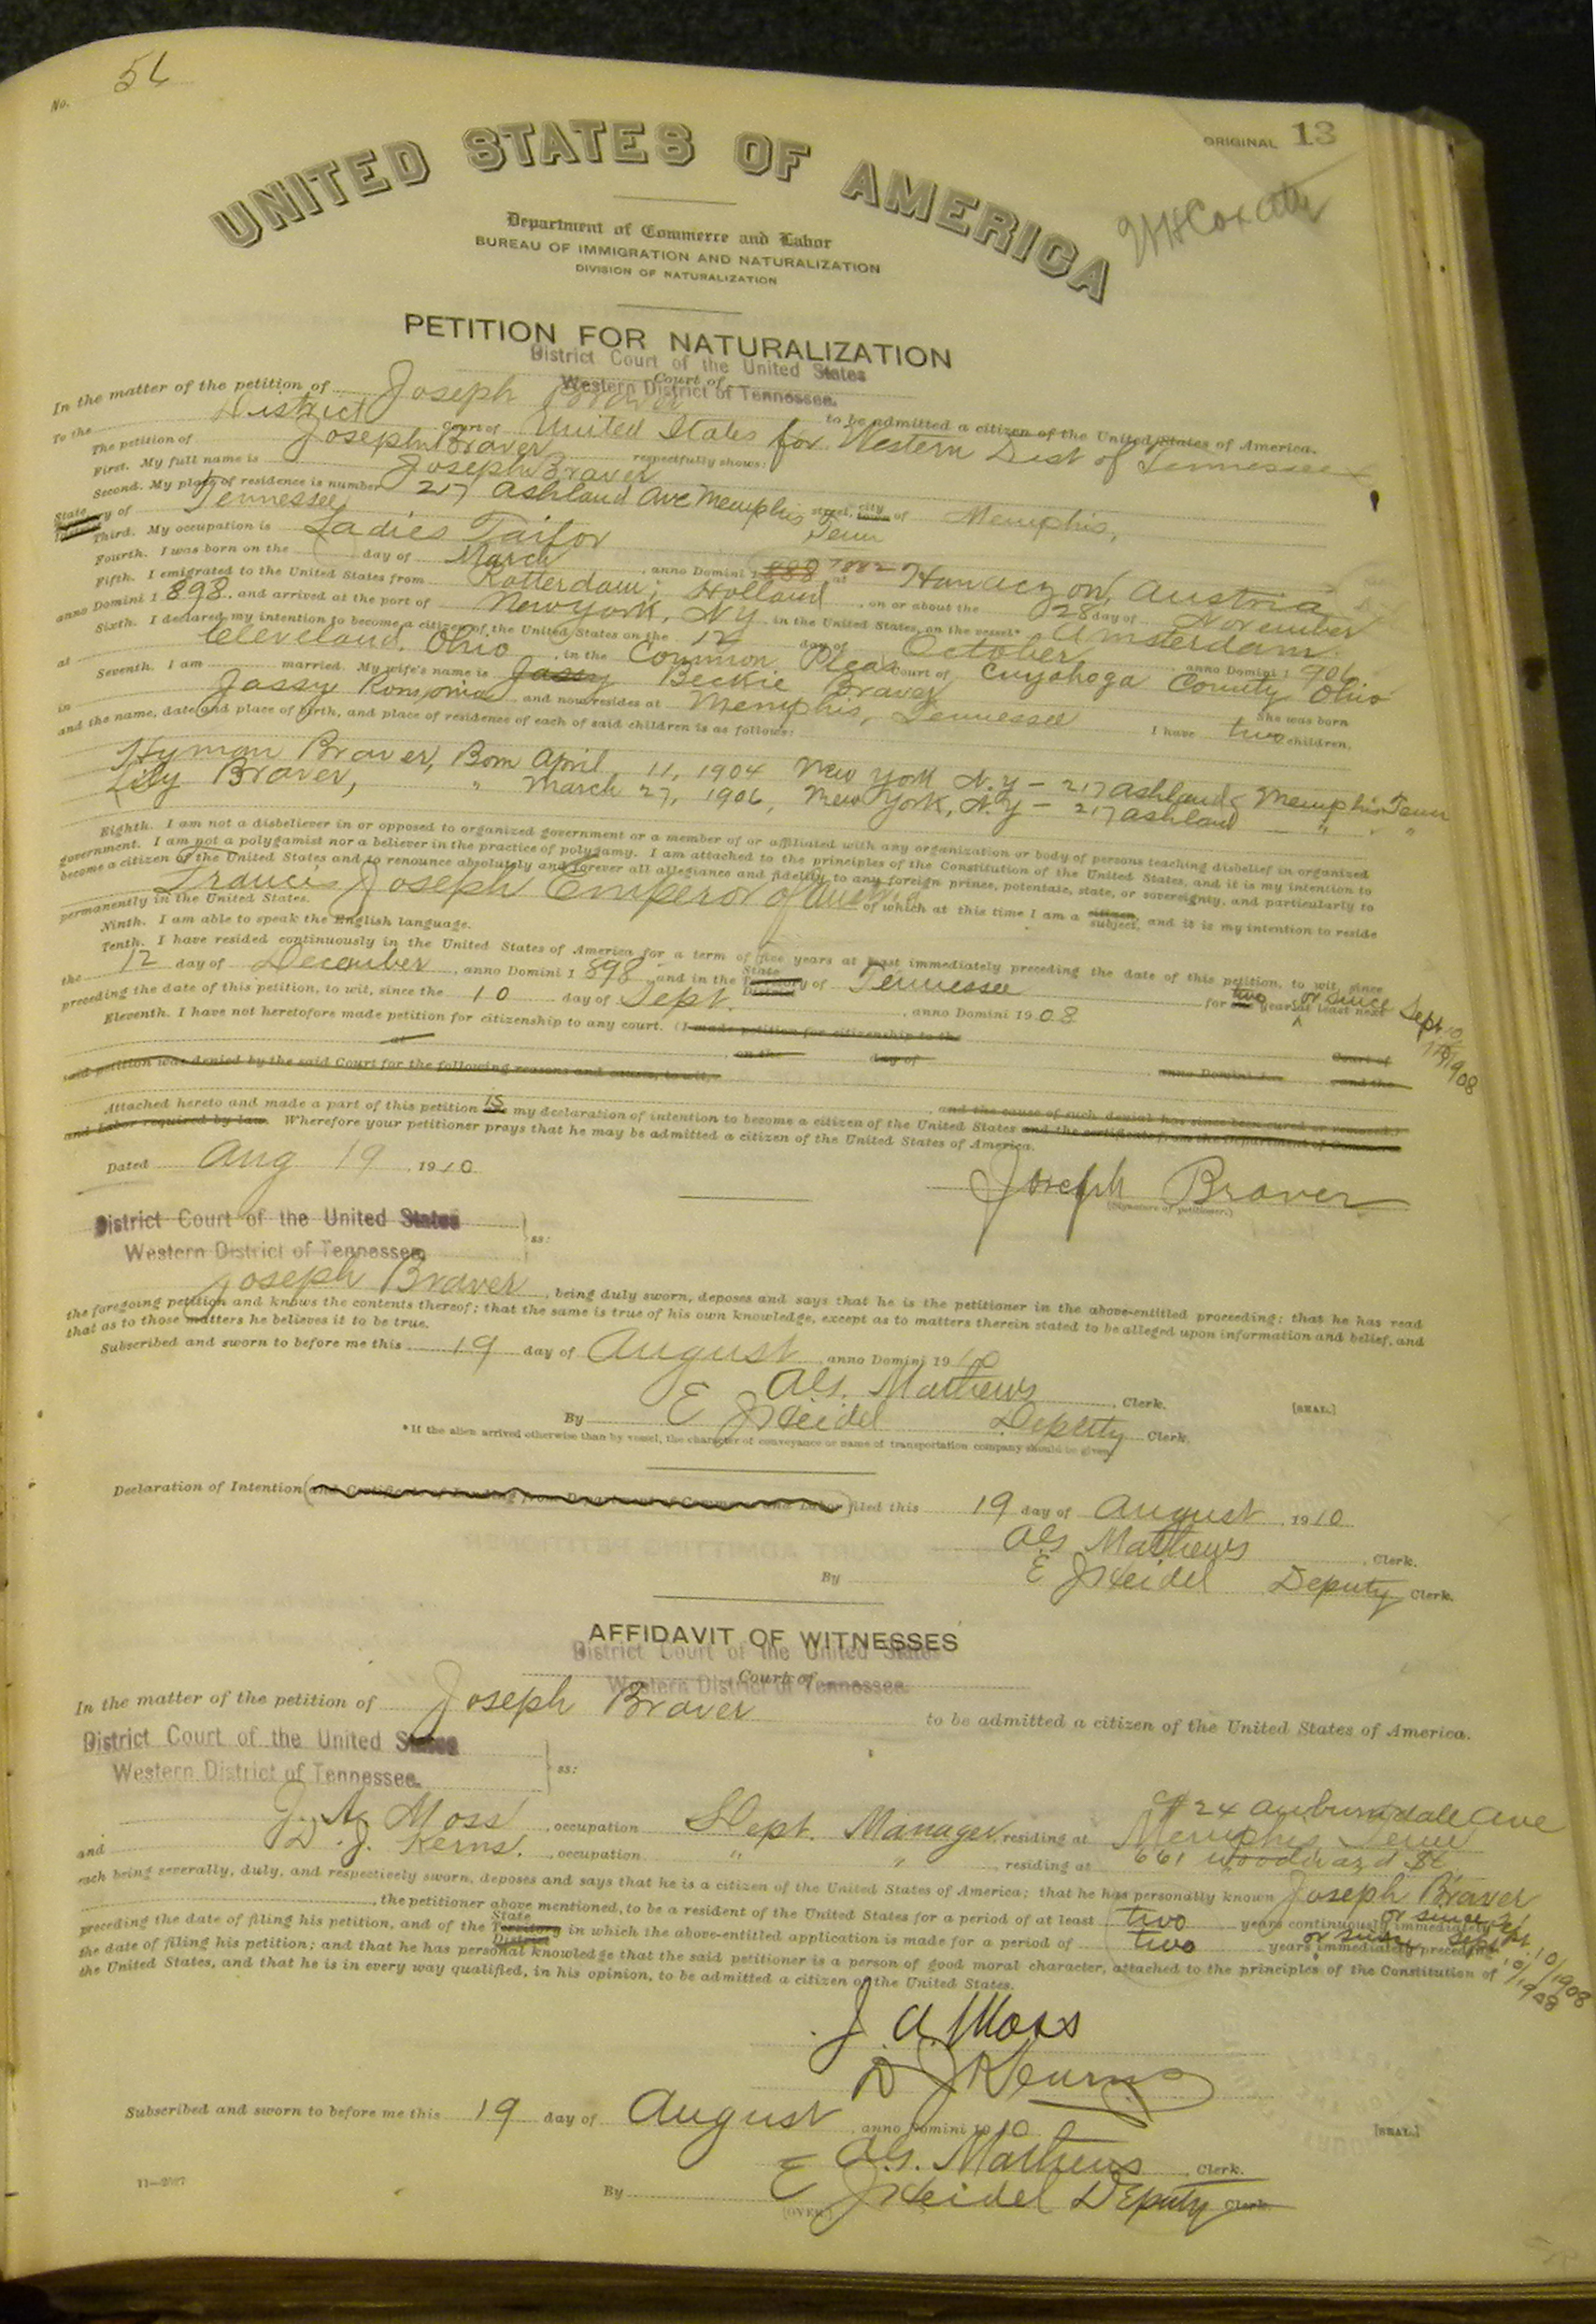 No. 56
ORIGINAL 13
UNITED STATES OF AMERICA
W H Cox atty
Department of Commerce and Labor
BUREAU OF IMMIGRATION AND NATURALIZATION
DIVISION OF NATURALIZATION
PETITION FOR NATURALIZATION
District Court of the United States
Court of
Western District of Tennessee.
In the matter of the petition of Joseph Braver to be admitted a citizen of the United States of America.
To the District Court of United States for Western Dist of Tennessee
The petition of Joseph Braver respectfully shows:
First. My full name is Joseph Braver
Second. My place of residence is number 217 Ashland Ave Memphis Tenn street, city of Memphis,
State of Tennessee
Third. My occupation is Ladies Tailor
Fourth. I was born on the day of March, anno Domini 1 882 at Austria
Fifth. I emigrated to the United States from Rotterdam, Holland, on or about the 28 day of November
anno Domini 1 898, and arrived at the port of New York, N.Y. in the United States, on the vessel* Amsterdam.
Sixth. I declared my intention to become a citizen of the United States on the 12 day of October anno Domini 1 906
at Cleveland, Ohio, in the Common Pleas Court of Cuyahoga County Ohio
Seventh. I am married. My wife's name is Jassy Beckie Braver She was born
in Jassy and now resides at Memphis, Tennessee I have two children,
and the name, date and place of birth, and place of residence of each of said children is as follows:
Hyman Braver, Born April 11, 1904 New York N.Y - 217 Ashland Memphis Tenn
Lily Braver, " March 27, 1906, New York, N.Y - 217 Ashland " " "
Eighth. I am not a disbeliever in or opposed to organized government or a member of or affiliated with any organization or body of persons teaching disbelief in organized
government. I am not a polygamist nor a believer in the practice of polygamy. I am attached to the principles of the Constitution of the United States, and it is my intention to
become a citizen of the United States and to renounce absolutely and forever all allegiance and fidelity to any foreign prince, potentate, state, or sovereignty, and particularly to
Francis Joseph Emperor of Austria of which at this time I am a citizen, subject, and it is my intention to reside
permanently in the United States.
Ninth. I am able to speak the English language.
Tenth. I have resided continuously in the United States of America for a term of five years at least immediately preceding the date of this petition, to wit, since
the 12 day of December, anno Domini 1 898, and in the State Territory District of Tennessee for two years at least next or since Sept 10 1908
preceding the date of this petition, to wit, since the 10 day of Sept., anno Domini 19 08
Eleventh. I have not heretofore made petition for citizenship to any court. (I made petition for citizenship to the
Court of
at on the day of anno Domini 1 and the
said petition was denied by the said Court for the following reasons and causes, to wit,
, and the cause of such denial has since been cured or removed.)
Attached hereto and made a part of this petition is my declaration of intention to become a citizen of the United States and the certificate from the Department of Commerce
and Labor required by law. Wherefore your petitioner prays that he may be admitted a citizen of the United States of America.
Dated Aug 19, 1910
Joseph Braver
(Signature of petitioner.)
District Court of the United States
Western District of Tennessee. ss:
Joseph Braver, being duly sworn, deposes and says that he is the petitioner in the above-entitled proceeding; that he has read
the foregoing petition and knows the contents thereof; that the same is true of his own knowledge, except as to matters therein stated to be alleged upon information and belief, and
that as to those matters he believes it to be true.
Subscribed and sworn to before me this 19 day of August, anno Domini 19 10
Als. Mathews, Clerk. [SEAL.]
By E J Heidel Deputy Clerk.
* If the alien arrived otherwise than by vessel, the character of conveyance or name of transportation company should be given
Declaration of Intention (and Certificate of Landing from Department of Commerce and Labor) filed this 19 day of August, 1910
Als Mathews, Clerk.
By E J Heidel Deputy Clerk.
AFFIDAVIT OF WITNESSES
District Court of the United States
Court of
Western District of Tennessee.
In the matter of the petition of Joseph Braver to be admitted a citizen of the United States of America.
District Court of the United States
Western District of Tennessee. ss:
J. A. Moss, occupation Dept. Manager residing at #24 Auburndale Ave Memphis Tenn
and D. J. Kerns., occupation " ", residing at 661 Woodward St
each being severally, duly, and respectively sworn, deposes and says that he is a citizen of the United States of America; that he has personally known Joseph Braver
, the petitioner above mentioned, to be a resident of the United States for a period of at least two years continuously immediately or since Sept. 10/1908
preceding the date of filing his petition, and of the State Territory District in which the above-entitled application is made for a period of two years immediately preceding or since Sept. 10/1908
the date of filing his petition; and that he has personal knowledge that the said petitioner is a person of good moral character, attached to the principles of the Constitution of
the United States, and that he is in every way qualified, in his opinion, to be admitted a citizen of the United States.
J. A. Moss
D J Kearns
Subscribed and sworn to before me this 19 day of August, anno Domini 19 10 [SEAL.]
Als. Mathews, Clerk.
By E J Heidel Deputy Clerk.
11—2327
(OVER.)